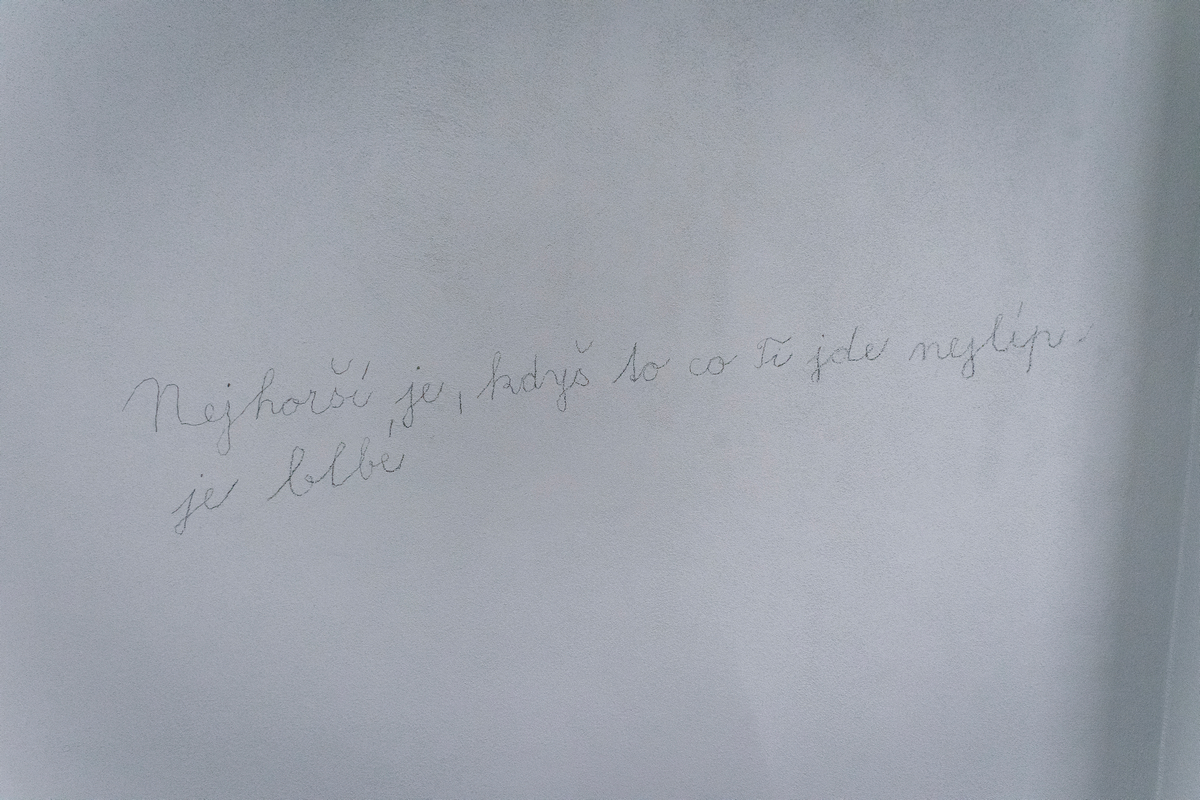 Nejhorší je, kdyš to co Ti jde nejlíp.
je blbé